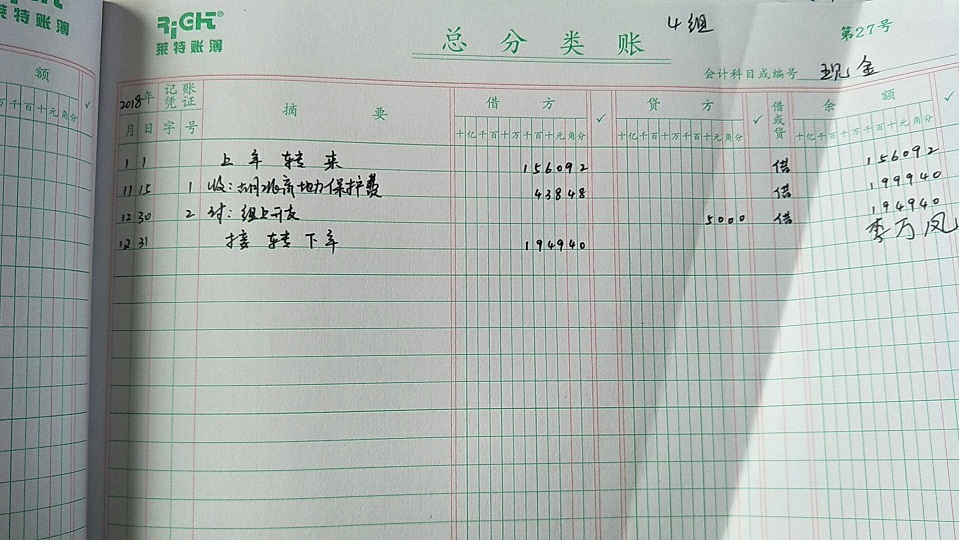 RiGHT
莱特账簿
额
万千百十元角分 ✓
RiGHT
莱特账簿
总分类账 4组
第27号
会计科目或编号 现金
2018年 记账凭证 摘要 借方 ✓ 贷方 ✓ 借或贷 余额 ✓
月 日 字 号 十亿千百十万千百十元角分 十亿千百十万千百十元角分 十亿千百十万千百十元角分
1 1 上年转来 156092 借 156092
11 15 1 收: 地力保护费 43848 借 199940
12 30 2 付: 组上开支 5000 借 194940
12 31 接转下年 194940 李万凤